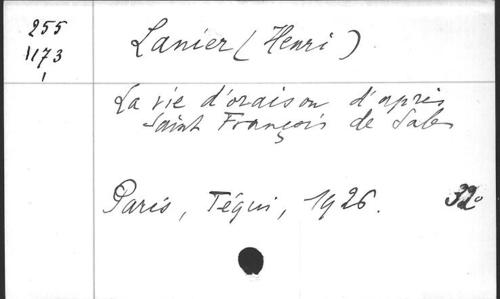 255
1173
Lanier (Henri)
La vie d'oraison d'après
Saint François de Sales
Paris, Téqui, 1926. 32°